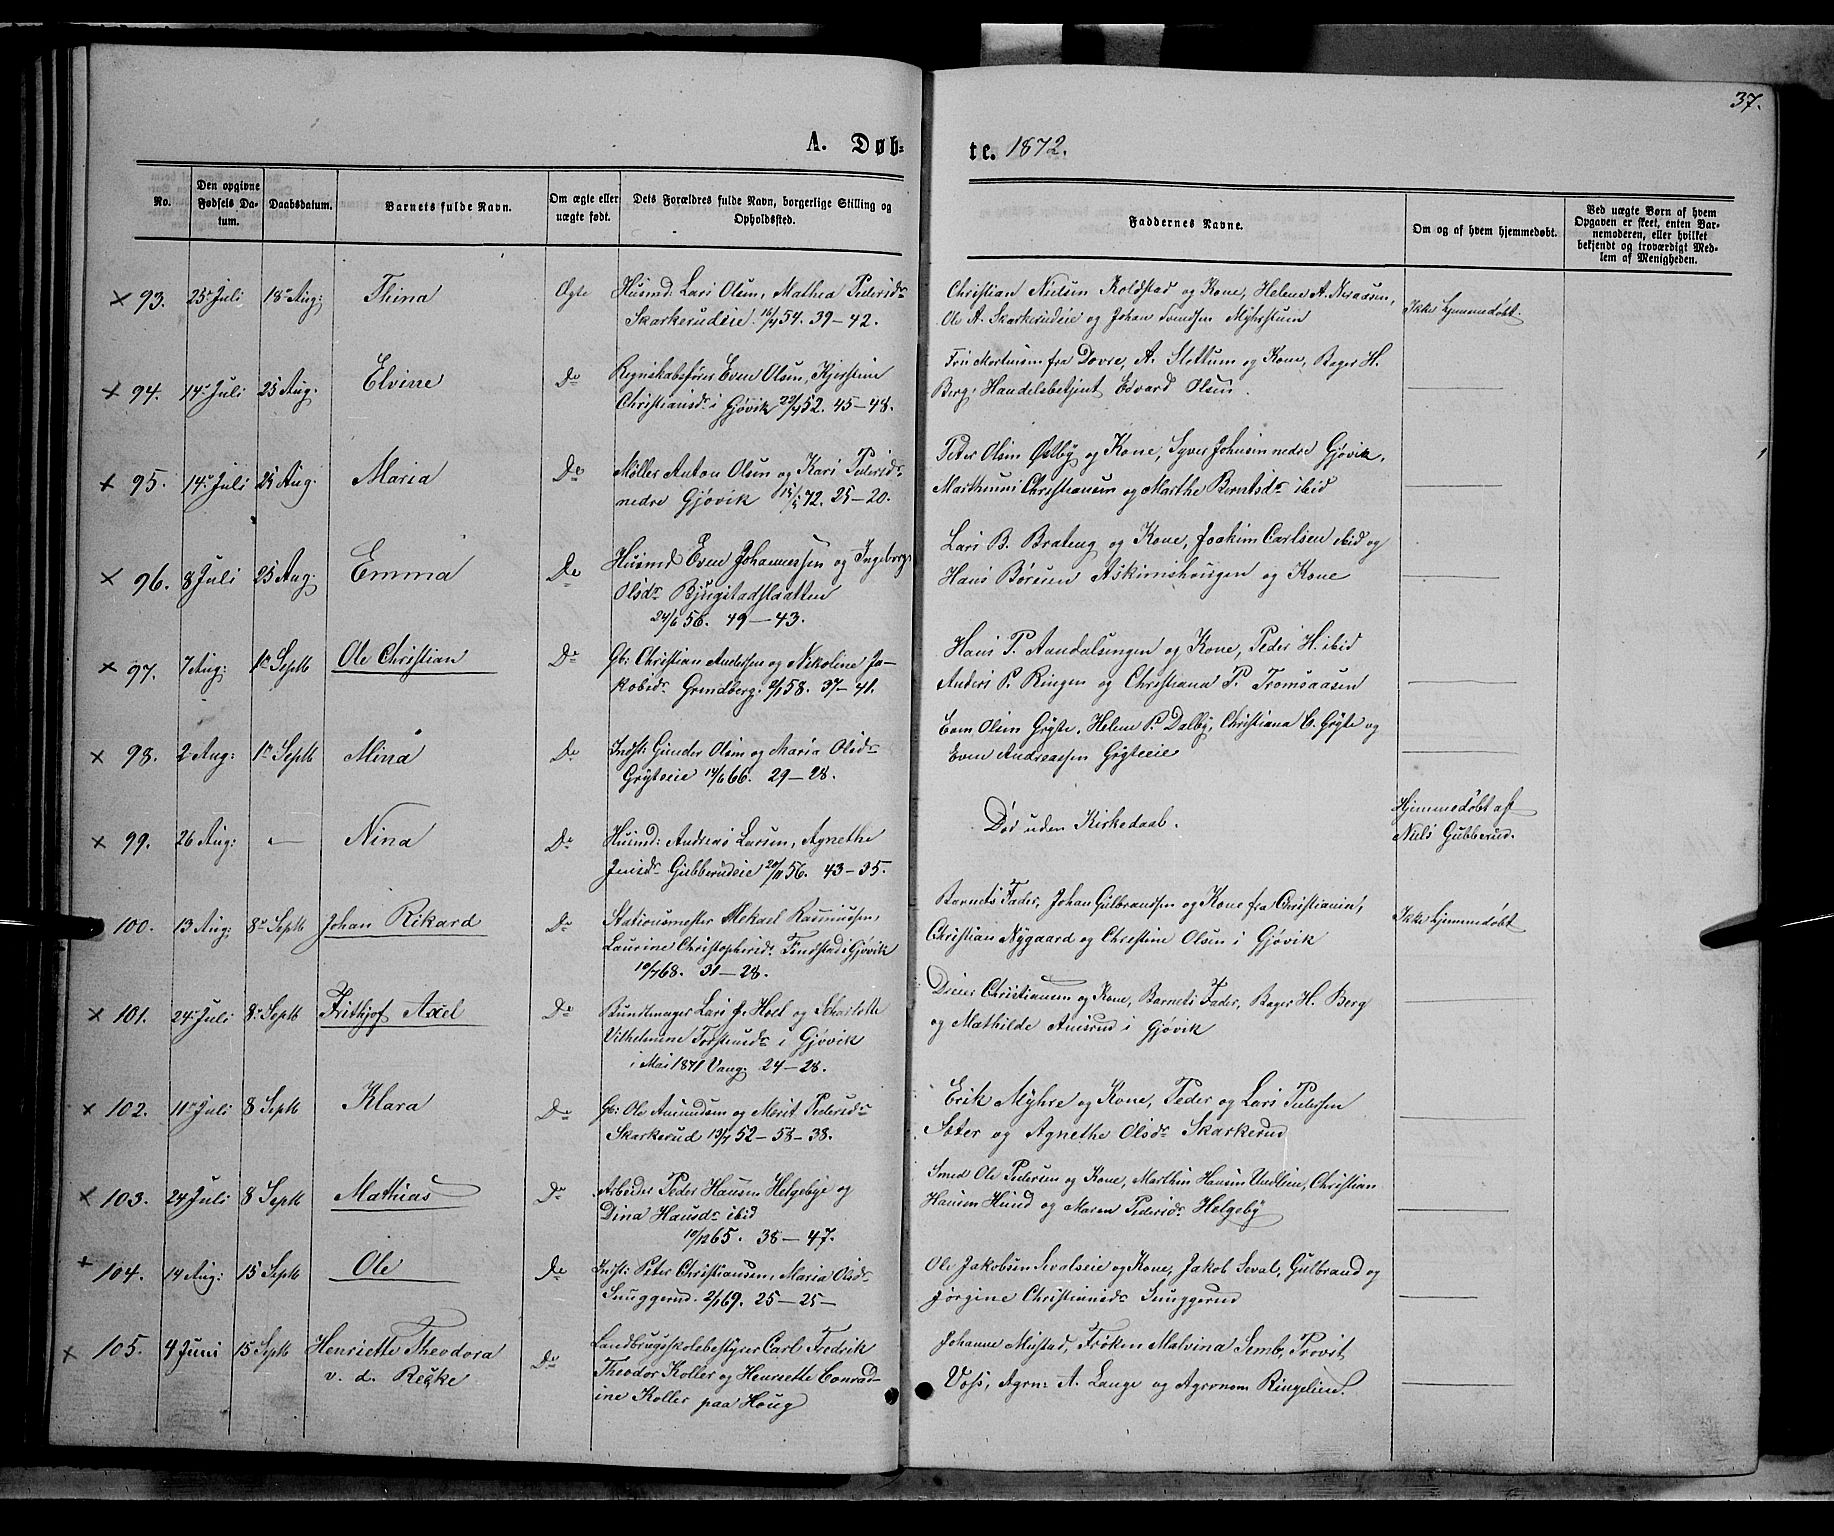 37.
A. Døb= te. 1872.
No.
Den opgivne Fødsels Datum.
Daabsdatum.
Barnets fulde Navn.
Om ægte eller uægte født.
Dets Forældres fulde Navn, borgerlige Stilling og Opholdssted.
Faddernes Navne.
Om og af hvem hjemmedøbt.
Ved uægte Børn af hvem Opgaven er skeet, enten Barnemoderen, eller hvilket bekjendt og troværdigt Medlem af Menigheden.
× 93. 25 Juli 18 Aug: Thina Ægte Husmd: Lars Olsen, Mathea Pedersdr
Skarkerudeie. 54. 39–42.
Christian Nielsen Koldstad og Kone, Helene A.
Ole A. Skarkerudeie og Johan
Ikke hjemmedøbt.
× 94. 14 Juli 25 Aug. Elvine Do Regnskabsfører Even Olsen, Kjerstine
Christiansdr i Gjøvik 52. 45–48.
Mortensen fra Dovre, A. Slettum og Kone, Bager H.
Berg, Handelsbetjent Edvard Olsen.
× 95. 14 Juli 25 Aug. Maria Do Møller Anton Olsen og Kari Pedersdr
nedre Gjøvik 72. 25–20.
Peter Olsen Østby og Kone, Syver Johnsen nedre Gjøvik,
Christiansen og Marthe Berntsdr ibid
× 96. 8 Juli 25 Aug: Emma Do Husmd Even Johannessen og Ingeborg
Olsdr Bjugstadslaatten
24/6 56. 49–43.
Lars B. Brateng og Kone, Joakim Carlsen ibid og
Hans Børesen Askimshougen og Kone
× 97. 7 Aug: 1 Septb Ole Christian Do Gb: Christian Andersen og Nikoline Ja-
kobsdr Grindberg. 58. 37–41.
Hans P. Aandalsengen og Kone, Peder H. ibid
Anders P. Ringen og Christiana P. Tromsaasen
× 98. 2 Aug: 1 Septb Mina Do Indst: Gunder Olsen og Maria Olsdr
Gryteeie 66. 29–28.
Even Olsen Gryte, Helene P. Dalby, Christiana E. Gryte og
Even Andreassen Gryteeie
× 99. 26 Aug: — Nina Do Husmd: Andreas Larsen, Agnethe
Jensdr Gubberudeie 56. 43–35.
Død uden Kirkedaab.
Hjemmedøbt af
Niels Gubberud.
100. 13 Aug: 8 Septb Johan Rikard Do Stationsmester Mekael Rasmussen,
Laurine Christophersdr Findstad i Gjøvik
10/7 68. 31–28.
Barnets Fader, Johan Gulbrandsen og Kone fra Christiania,
Christian Nygaard og Christine Olsen i Gjøvik
Ikke hjemmedøbt
× 101. 24 Juli 8 Septb Frithjof Axel Do Buntmager Lars J. Holt og Scharlotte
Vilhelmine Torstensdr i Gjøvik
i Mai 1871 Vang. 24–28.
Christiansen og Kone, Barnets Fader, Bager H. Berg
og Mathilde Amsrud i Gjøvik
× 102. 11 Juli 8 Septb Klara Do Gb: Ole Amundsen og Marit Pedersdr
Skarkerud 13/7 52–58–38.
Erik Myhre og Kone, Peder og Lars Pedersen
Sæter og Agnethe Olsdr Skarkerud
× 103. 24 Juli 8 Septb Mathias Do Arbeider Peder Hansen Helgebye og
Dina Hansdr ibid
10/12 65. 38–47.
Smed Ole Pedersen og Kone, Marthin Hansen Undlien, Christian
Hansen Hund og Maren Pedersdr Helgeby
+ 104. 14 Aug: 15 Septb Ole Do Indst: Peter Christiansen, Maria Olsdr
Snuggerud. 2/1 69. 25–25–
Ole Jakobsen Sevalseie og Kone, Jakob Seval, Gulbrand og
Jørgine Christiansdr Snuggerud
× 105. 4 Juni 15 Septb Henriette Theodora Do Landbrugsskolebestyrer Carl Fredrik
v. d. Recke Theodor Koller og Henriette Conrad-
ine Koller paa Houg
Johanne Mustad, Frøken Malvina Semb, Provst
Voss, Agrn: A. Lange og Agronom Ringelien.